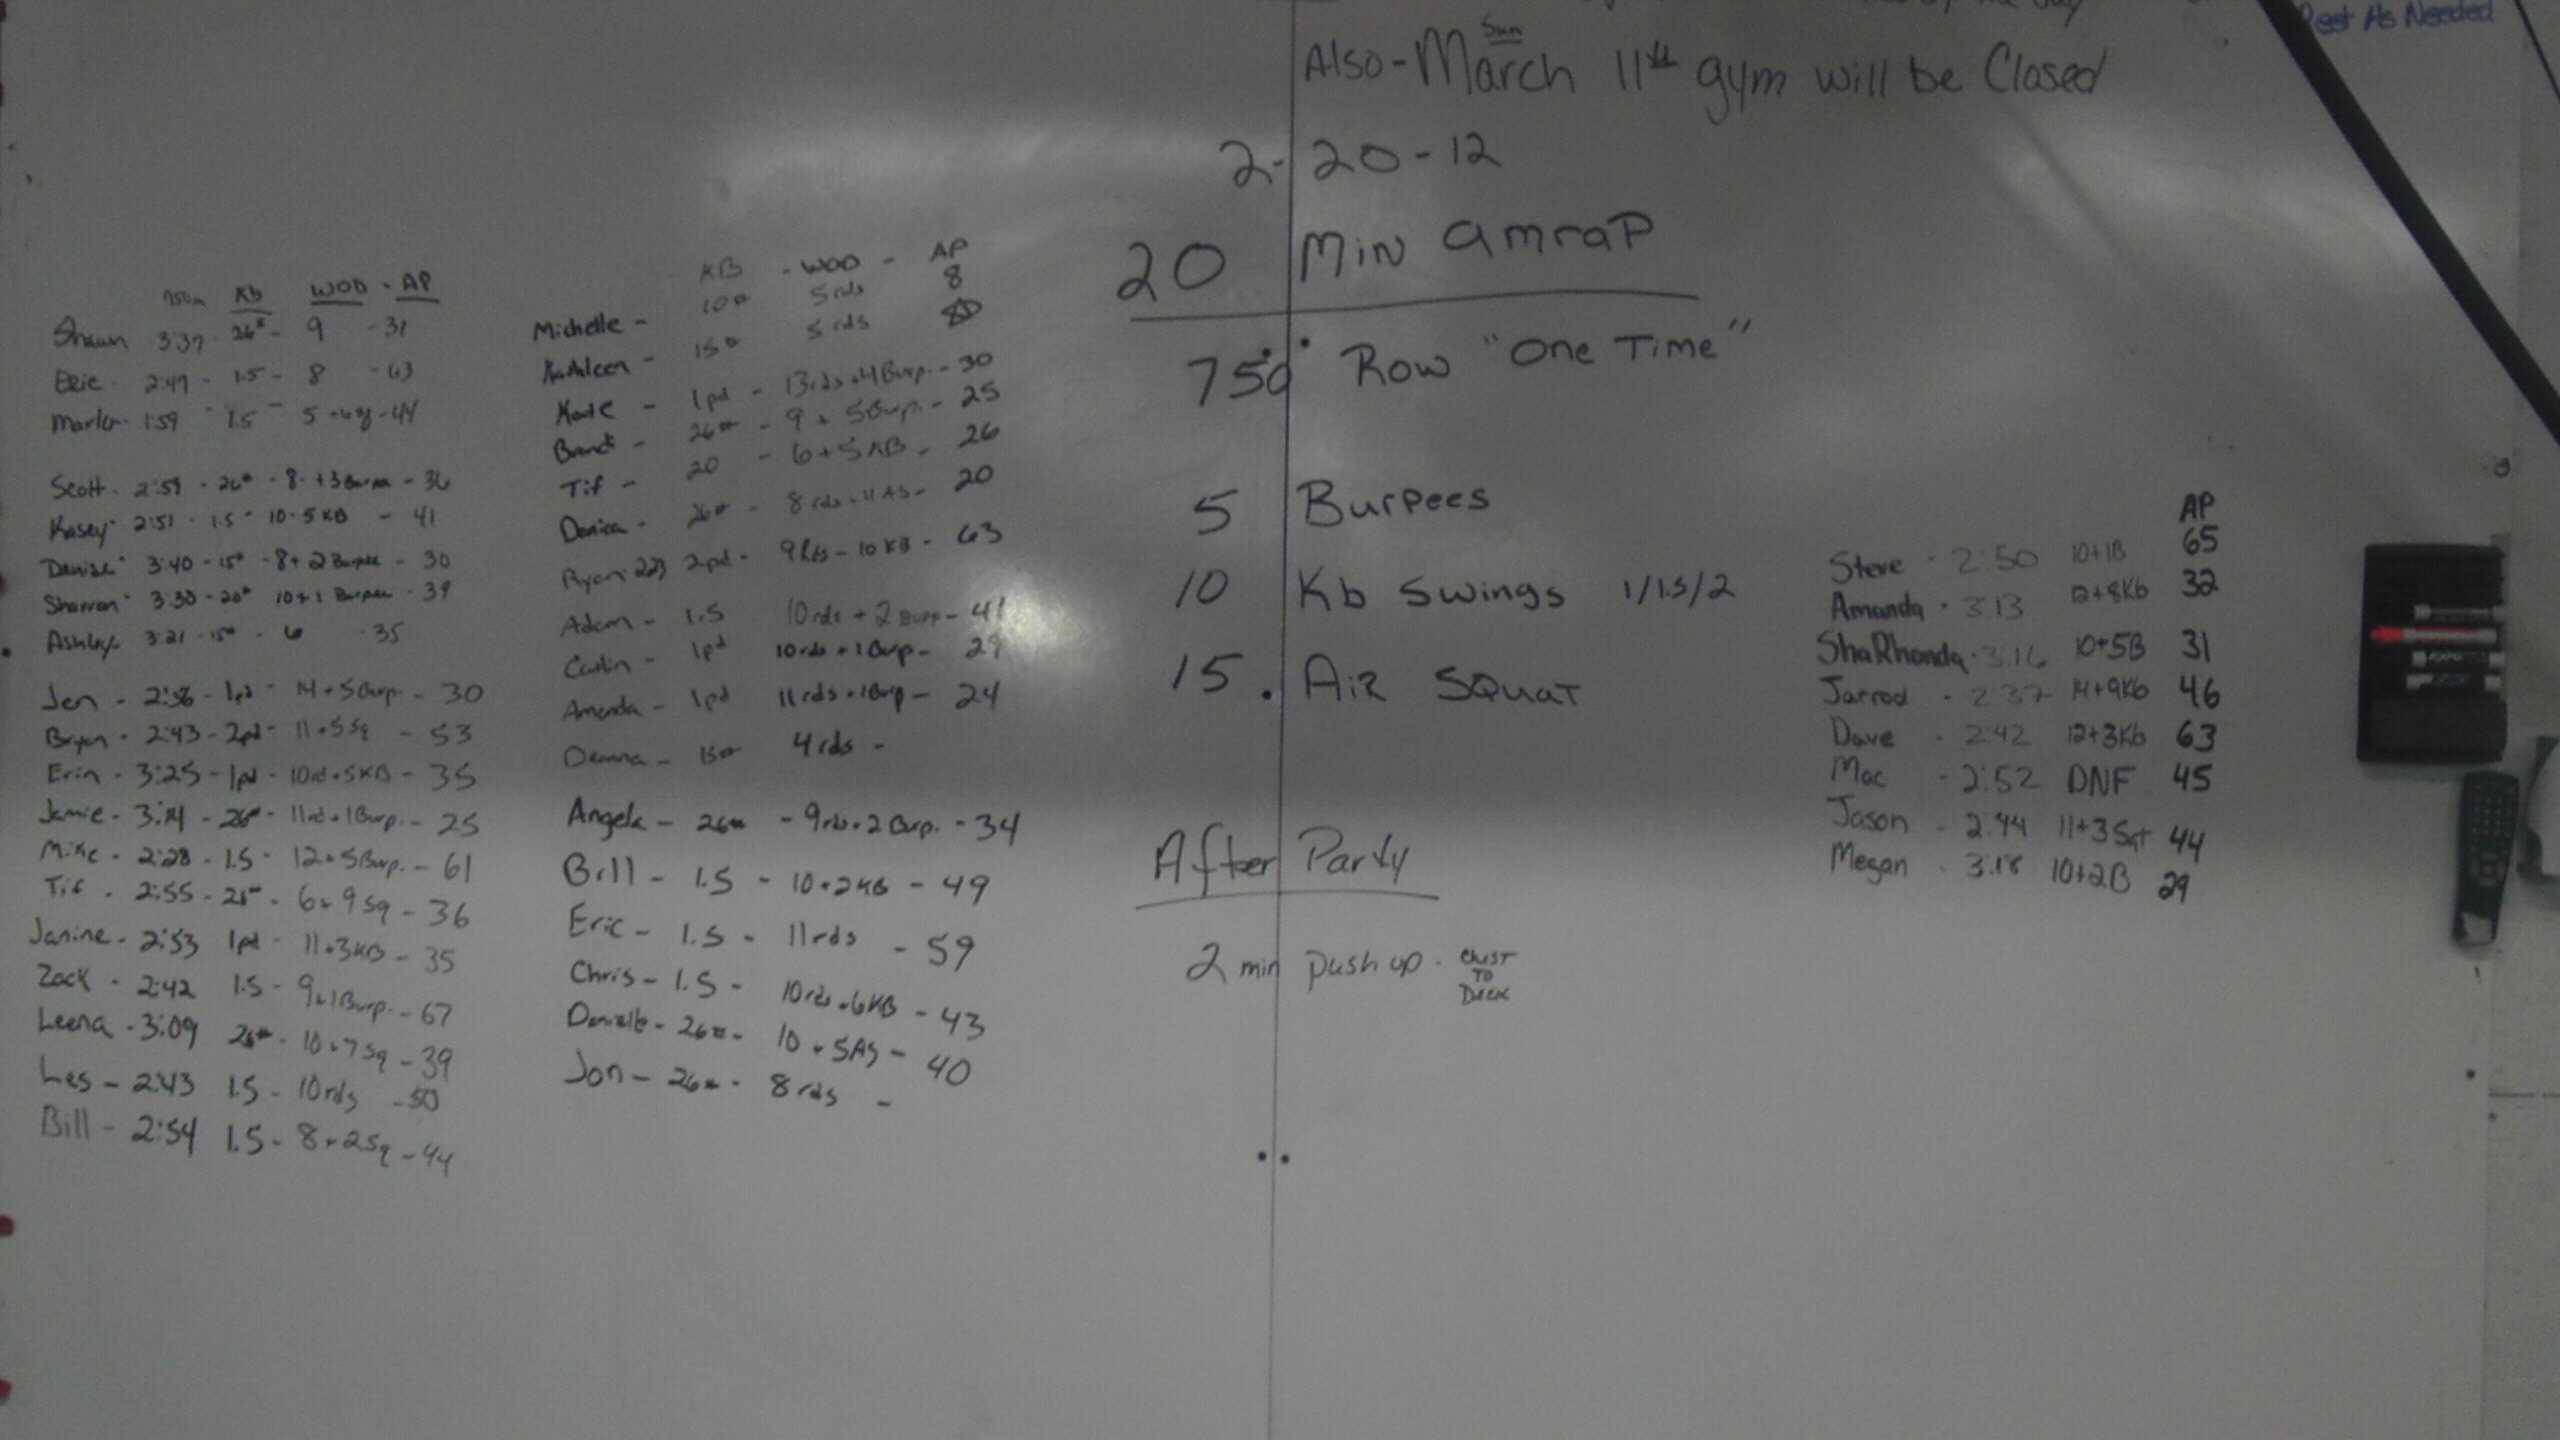 Rest As Needed
Sun
Also - March 11th gym will be Closed
2-20-12
20 Min amraP
750 Row "One Time"
5 Burpees
10 Kb Swings 1/1.5/2
15. Air Squat
After Party
2 min push up - Chest
To
Deck
750m Kb WOD - AP
Shawn 3:37 - 26# - 9 - 31
Eric - 2:47 - 1.5 - 8 - 63
1:59 - 1.5 - 5 - 44
Scott - 2:59 - 26# - 8 - +3 - 36
Kasey - 2:51 - 1.5 - 10 - 5 KB - 41
Denise - 3:40 - 15# - 8 + 2 Burpee - 30
Sharron - 3:30 - 20# 10+1 Burpee - 39
Ashley - 3:21 - 15# - 6 - 35
Jen - 2:56 - 1pd - 14 + 5 Burp. - 30
Bryan - 2:43 - 2pd - 11 + 5 Sq - 53
Erin - 3:25 - 1pd - 10rd + 5 KB - 35
Jamie - 3:14 - 26# - 11rd + 1 Burp. - 25
Mike - 2:28 - 1.5 - 12 + 5 Burp. - 61
Tif - 2:55 - 6 + 9 Sq - 36
Janine - 2:53 1pd - 11 + 3 KB - 35
Zack - 2:42 1.5 - 9 + 1 Burp. - 67
Leena - 3:09 26# - 10 + 7 Sq - 39
Les - 2:43 1.5 - 10rds - 50
Bill - 2:54 1.5 - 8 + 2 Sq - 44
KB - WOD - AP
Michelle - 10# 5 rds 8
Kathleen - 15# 5 rds
1pd - 13rds + 4 Burp. - 30
26# - 9 + 5 Burp. - 25
Tif - 20 - 6 + 5 KB - 26
Danica - 26# - 8 rds + 11 AS - 20
Ryan 2pd - 9 Rds - 10 KB - 63
Adam - 1.5 10rds + 2 Burp - 41
Caitlin - 1pd 10rds + 1 Burp - 29
Amanda - 1pd 11rds + 1 Burp - 24
Deanna - 15# 4 rds -
Angela - 26# - 9rds + 2 Burp. - 34
Bill - 1.5 - 10 + 2 KB - 49
Eric - 1.5 - 11rds - 59
Chris - 1.5 - 10rds + 6 KB - 43
Danielle - 26# - 10 + 5 AS - 40
Jon - 26# - 8 rds -
AP
Steve - 2:50 10+1B 65
Amanda - 3:13 12+8Kb 32
ShaRhonda - 3:16 10+5B 31
Jarrod - 2:37 14+9Kb 46
Dave - 2:42 12+3Kb 63
Mac - 2:52 DNF 45
Jason - 2:44 11+3 Sqt 44
Megan - 3:18 10+2B 29